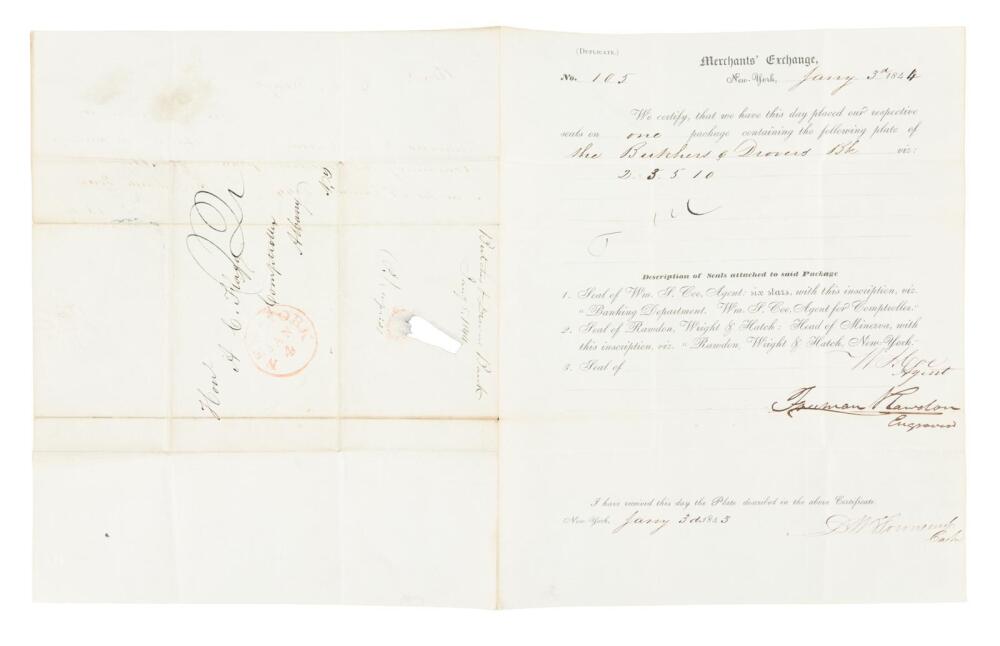 (Duplicate.)
Merchants' Exchange,
No. 105
New-York, Jany 3rd 1844
We certify, that we have this day placed our respective
seals on one package containing the following plate of
the Butchers & Drovers Bk viz:
2. 3. 5. 10
Description of Seals attached to said Package
1. Seal of Wm. S. Coe, Agent: six stars, with this inscription, viz.
"Banking Department. Wm. S. Coe, Agent for Comptroller."
2. Seal of Rawdon, Wright & Hatch: Head of Minerva, with
this inscription, viz. "Rawdon, Wright & Hatch, New-York."
3. Seal of
W. S. Coe
Agent
Freeman Rawdon
Engraver
I have received this day the Plate described in the above Certificate.
New-York, Jany 3d 1843
Cash
Hon A. C. Flagg
Comptroller
Albany
N.Y
NEW YORK
JAN
4
Butchers & Drovers Bank